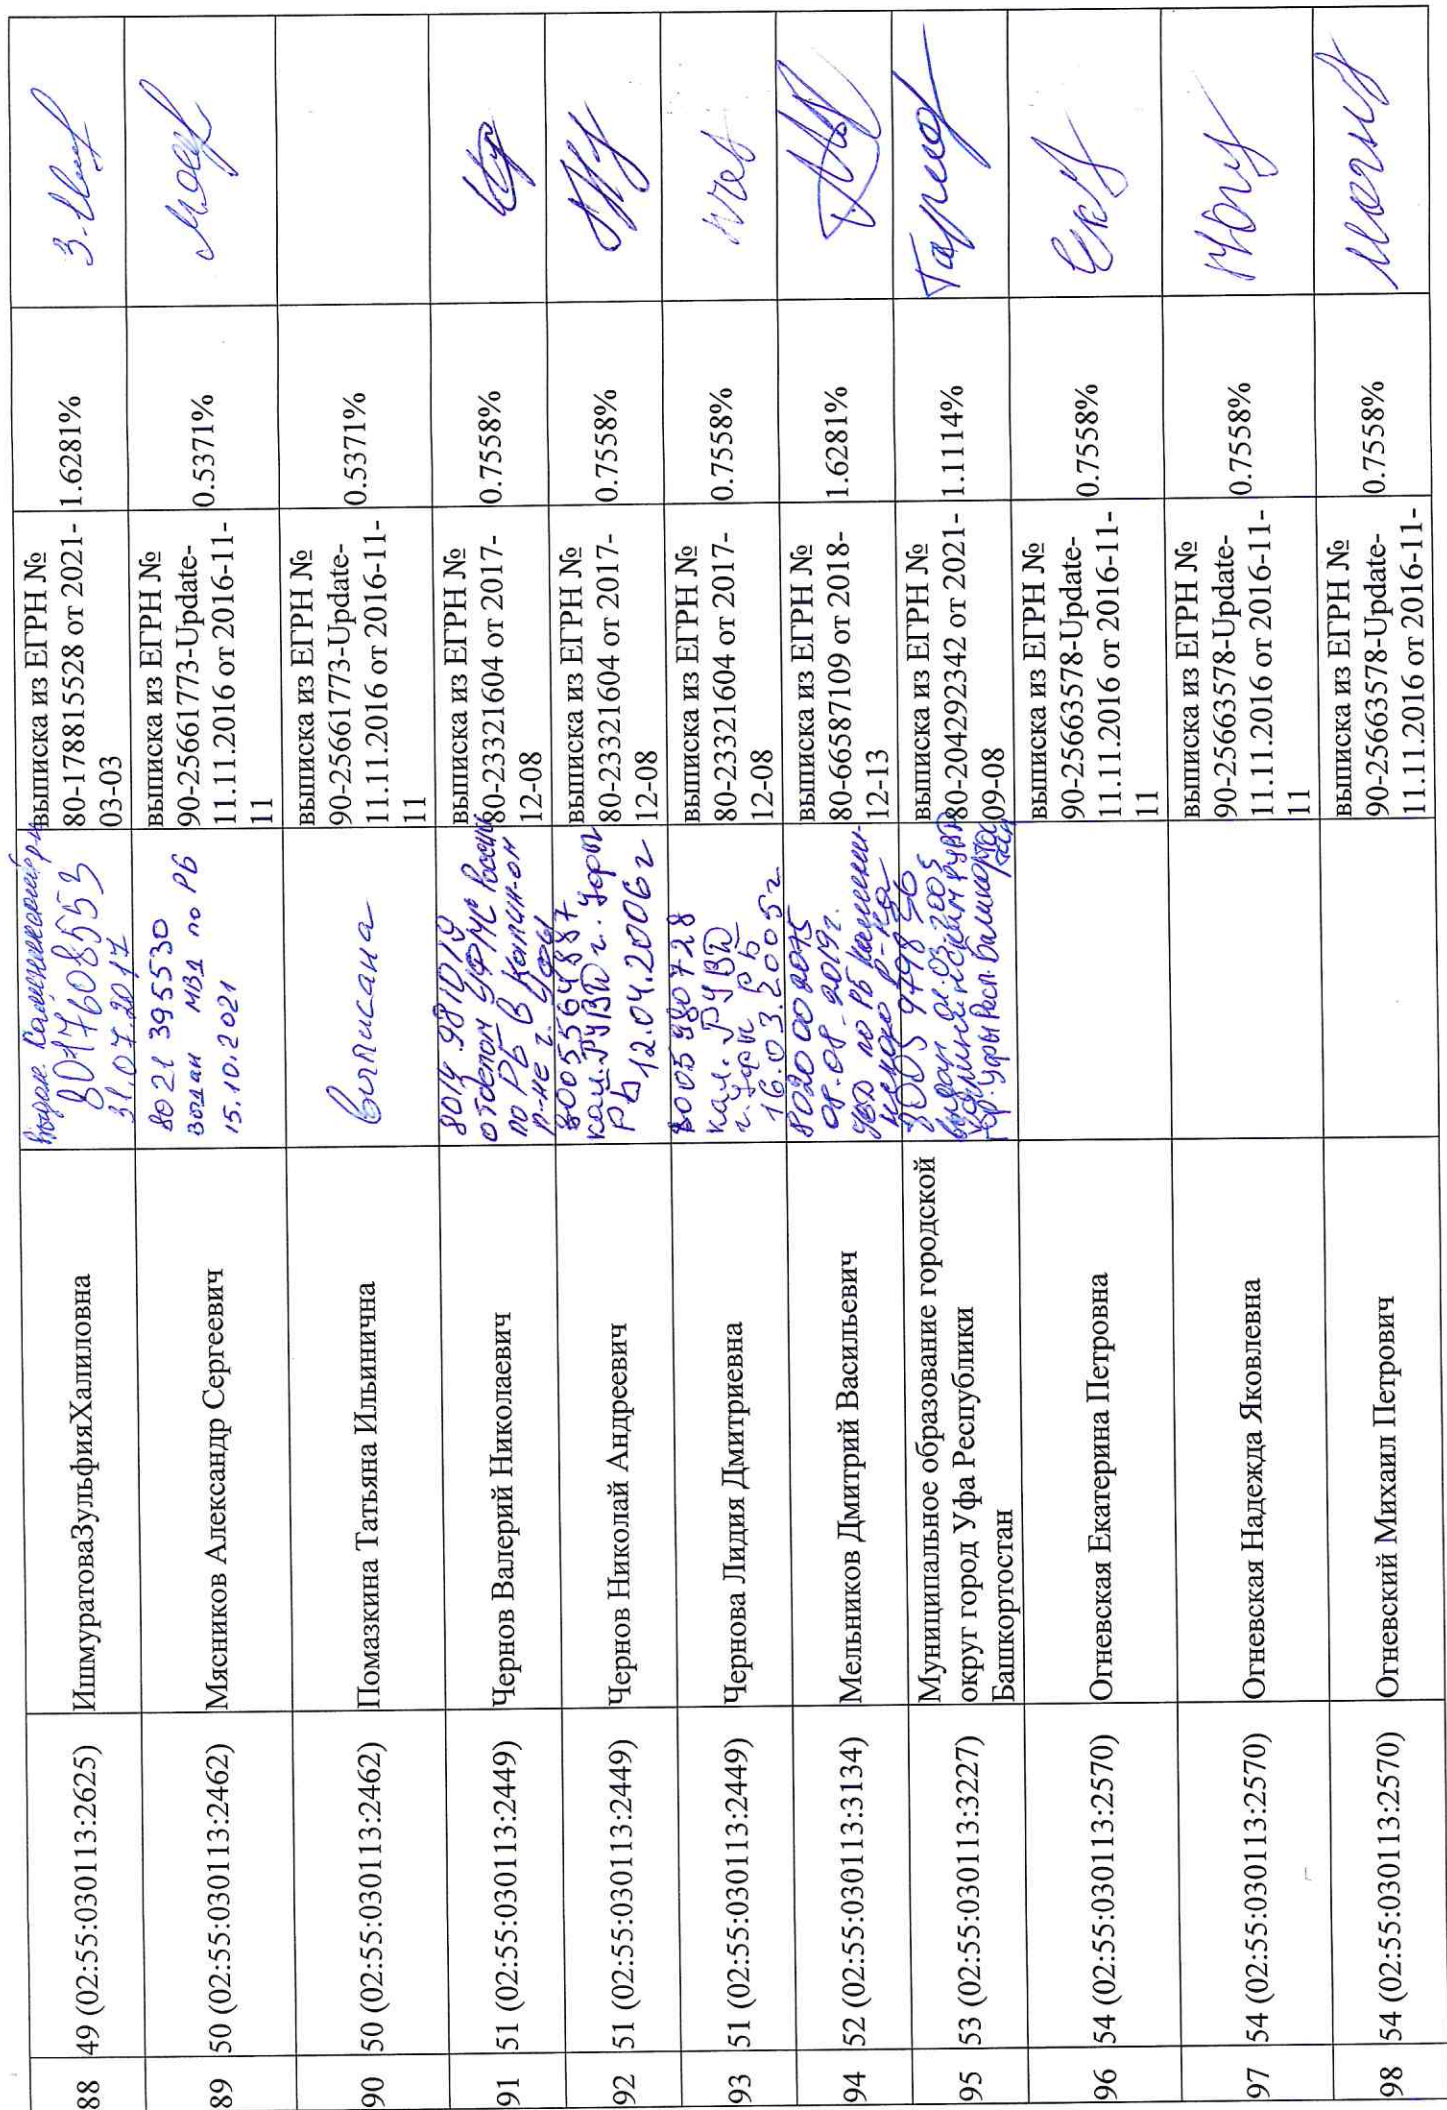 88
49 (02:55:030113:2625)
ИшмуратоваЗульфияХалиловна
8017608553
31.07.2017
выписка из ЕГРН №
80-178815528 от 2021-
03-03
1.6281%
89
50 (02:55:030113:2462)
Мясников Александр Сергеевич
8021 395530
выдан МВД по РБ
15.10.2021
выписка из ЕГРН №
90-25661773-Update-
11.11.2016 от 2016-11-
11
0.5371%
90
50 (02:55:030113:2462)
Помазкина Татьяна Ильинична
выписана
выписка из ЕГРН №
90-25661773-Update-
11.11.2016 от 2016-11-
11
0.5371%
91
51 (02:55:030113:2449)
Чернов Валерий Николаевич
отделом УФМС России
по РБ в Калин-ом
р-не г. Уфы
выписка из ЕГРН №
80-23321604 от 2017-
12-08
0.7558%
92
51 (02:55:030113:2449)
Чернов Николай Андреевич
8005564887
кал. РУВД г. Уфы
РБ 12.04.2006г
выписка из ЕГРН №
80-23321604 от 2017-
12-08
0.7558%
93
51 (02:55:030113:2449)
Чернова Лидия Дмитриевна
кал. РУВД
г. Уфы РБ
16.03.2005г
выписка из ЕГРН №
80-23321604 от 2017-
12-08
0.7558%
94
52 (02:55:030113:3134)
Мельников Дмитрий Васильевич
8020002075
08.08.2019г.
по РБ
выписка из ЕГРН №
80-66587109 от 2018-
12-13
1.6281%
95
53 (02:55:030113:3227)
Муниципальное образование городской
округ город Уфа Республики
Башкортостан
выдан 01.03.2005
Калининским РУВД
гор. Уфы Респ. Башкортостан
выписка из ЕГРН №
80-204292342 от 2021-
09-08
1.1114%
96
54 (02:55:030113:2570)
Огневская Екатерина Петровна
выписка из ЕГРН №
90-25663578-Update-
11.11.2016 от 2016-11-
11
0.7558%
97
54 (02:55:030113:2570)
Огневская Надежда Яковлевна
выписка из ЕГРН №
90-25663578-Update-
11.11.2016 от 2016-11-
11
0.7558%
98
54 (02:55:030113:2570)
Огневский Михаил Петрович
выписка из ЕГРН №
90-25663578-Update-
11.11.2016 от 2016-11-
0.7558%